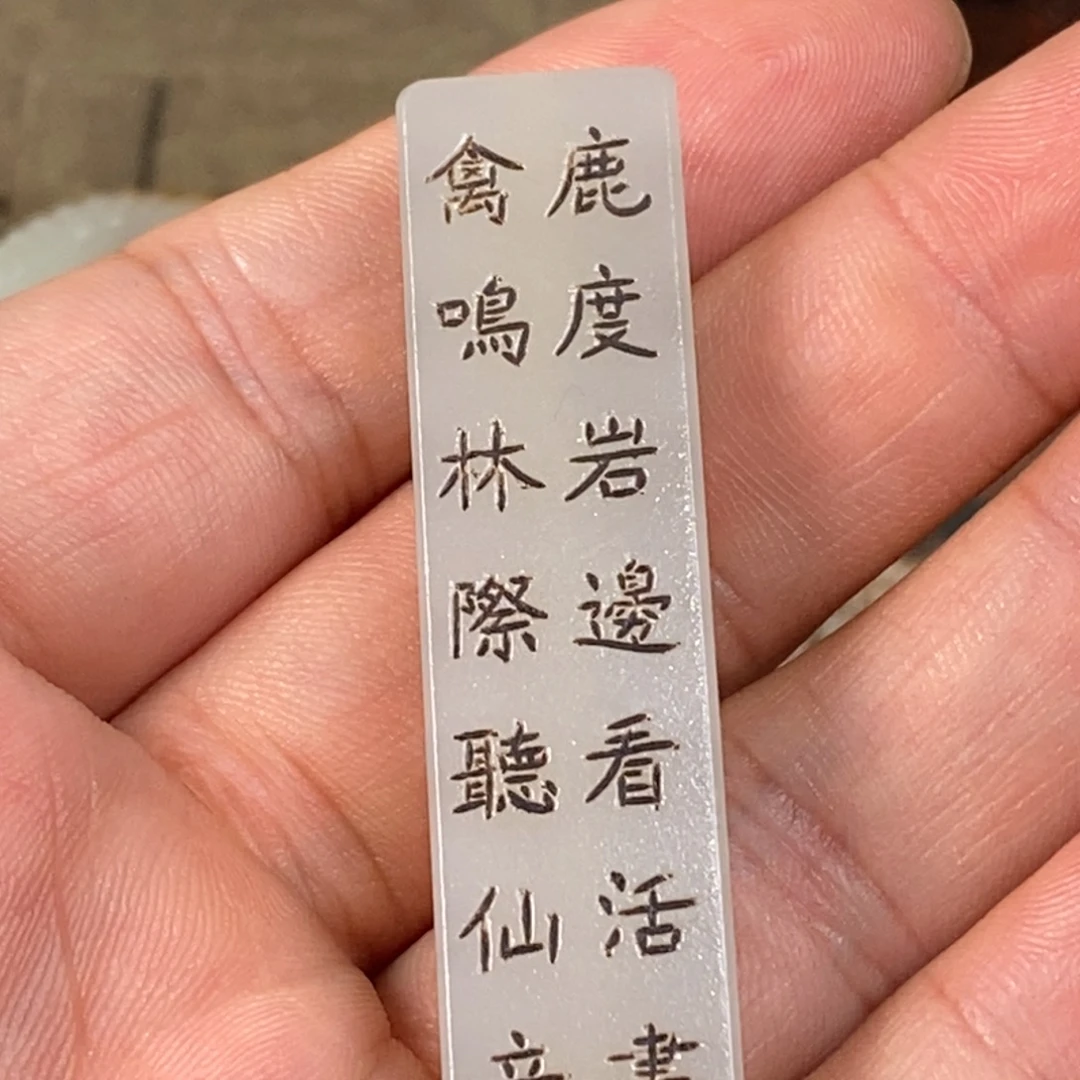 鹿度岩邊看活
禽鳴林際聽仙